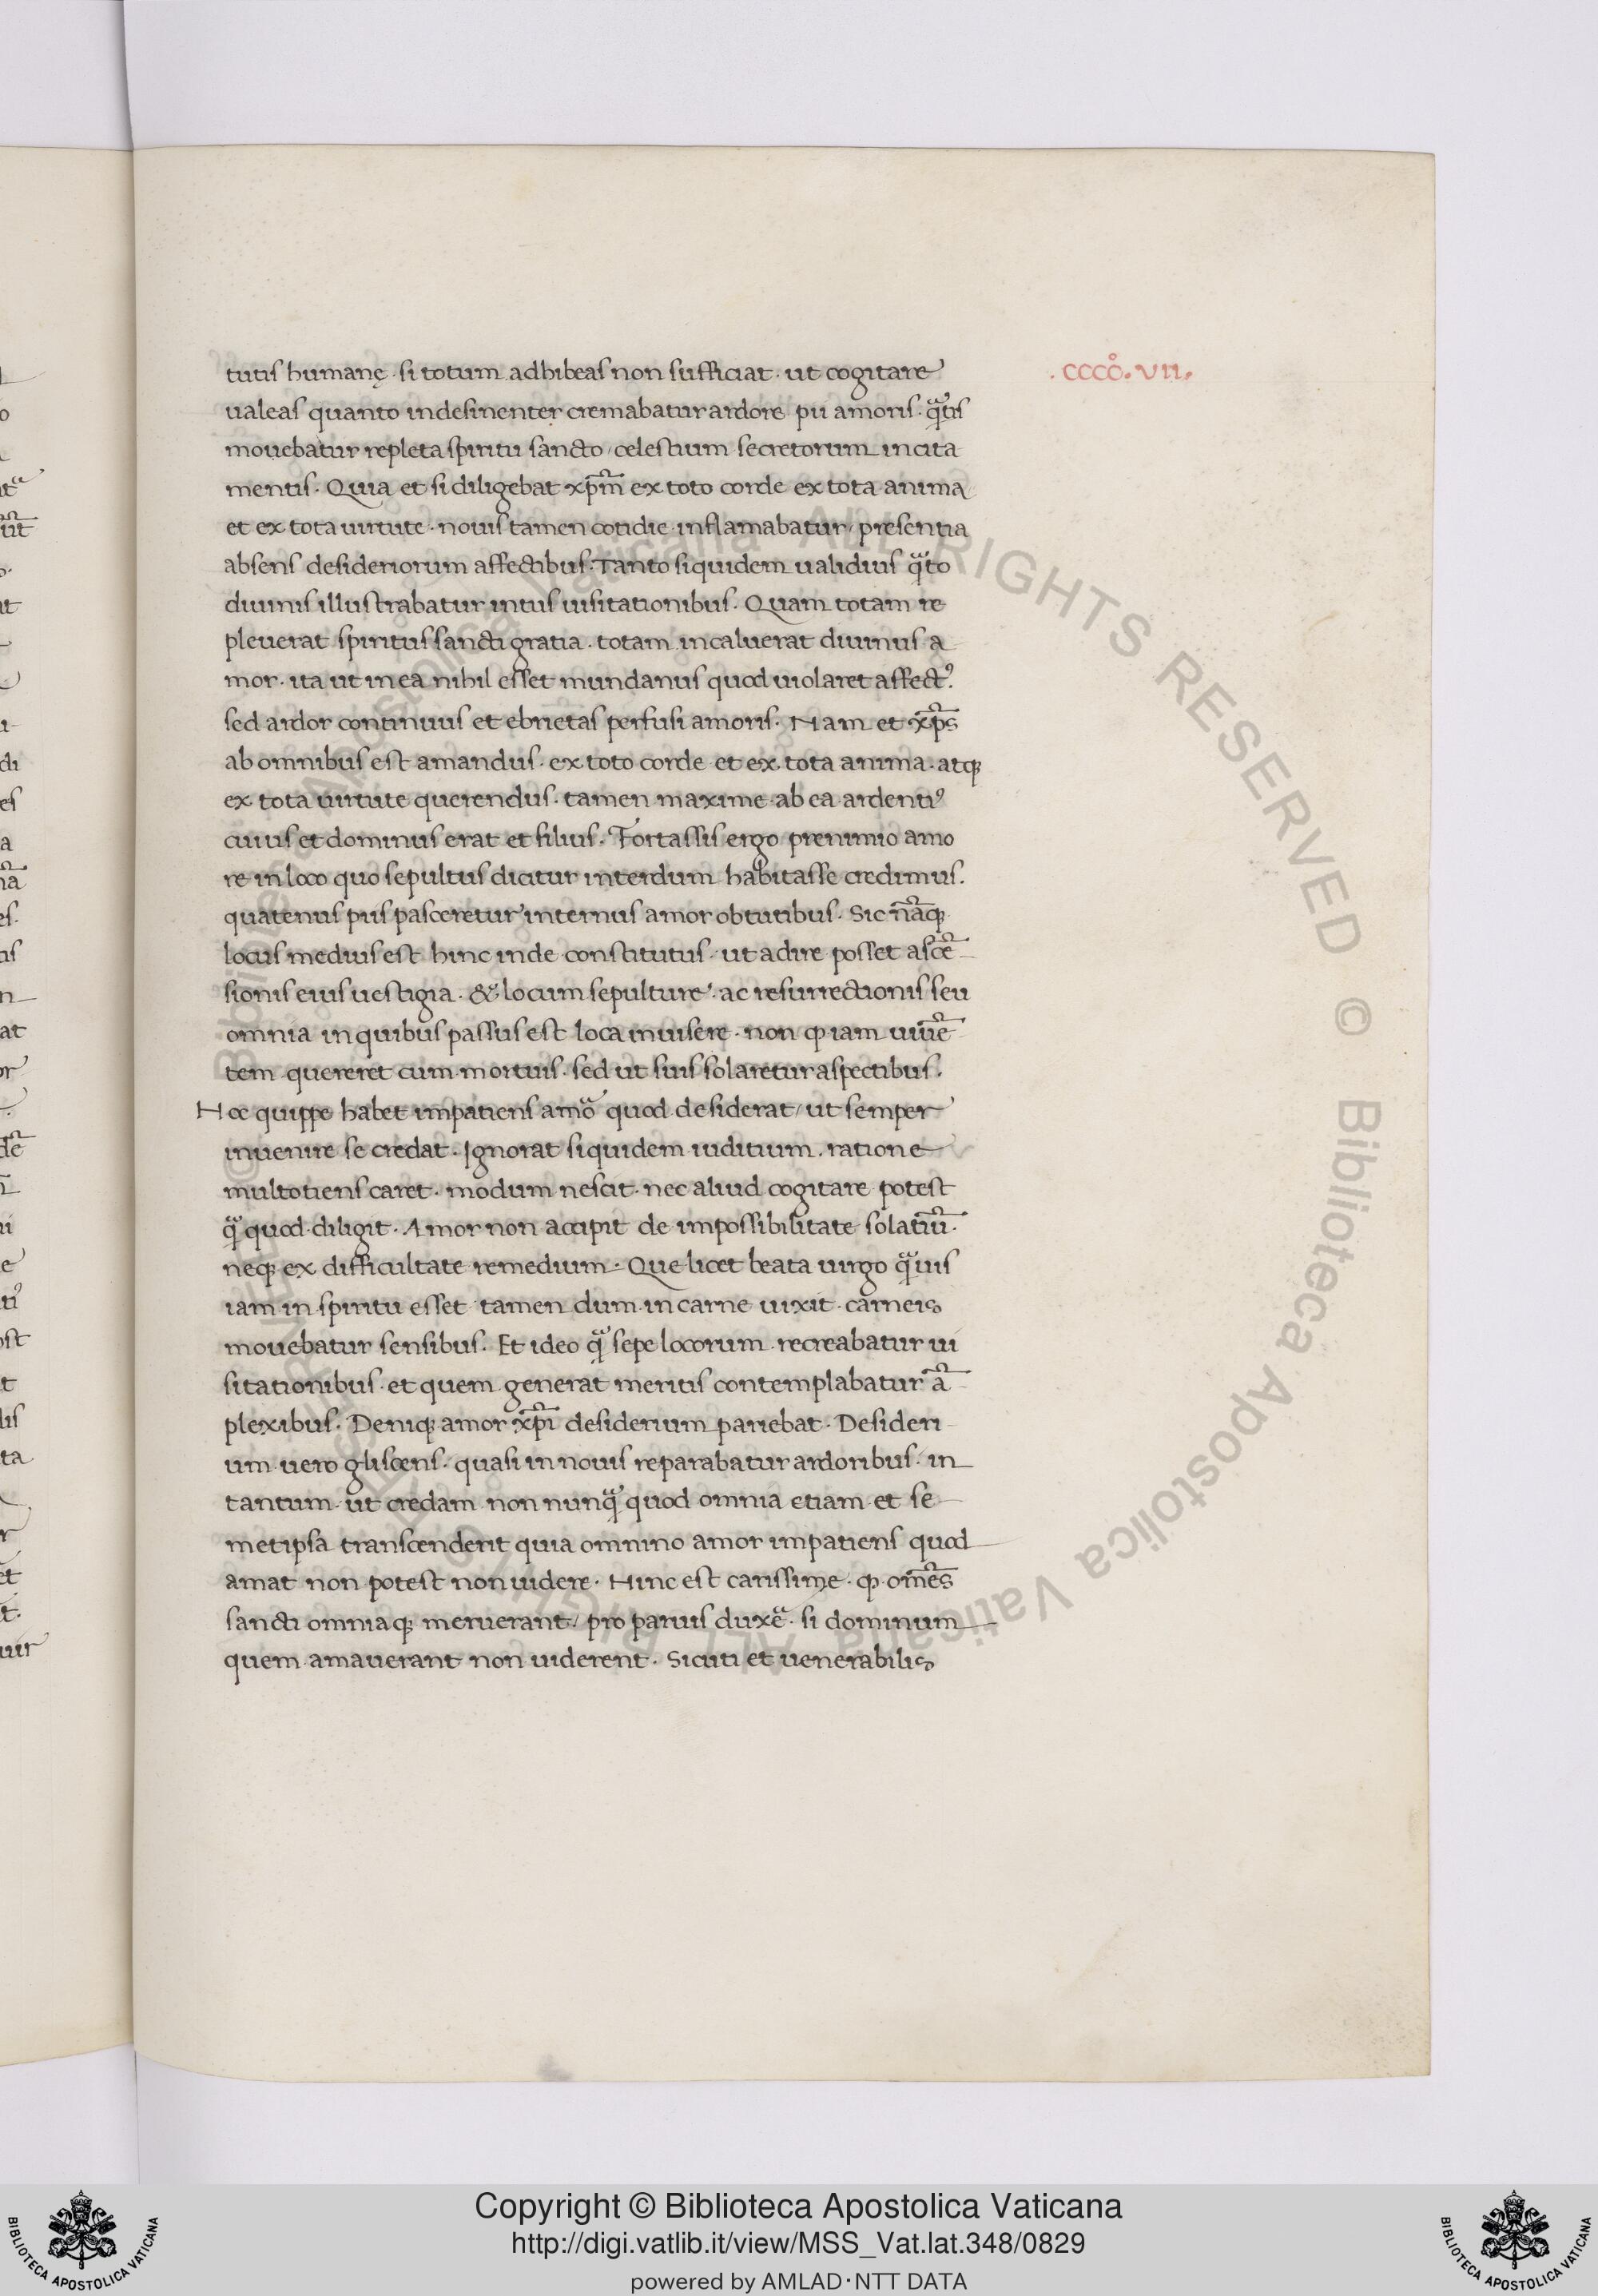 .CCCCº.VII.
tutis humanę. si totum adhibeas non sufficiat. ut cogitare
ualeas quanto indesinenter cremabatur ardore pii amoris. q̃tis
mouebatur repleta spiritu sancto/ celestium secretorum incita
mentis. Quia et si diligebat xp̃m ex toto corde ex tota anima
et ex tota uirtute. nouis tamen cotidie inflamabatur/ presentia
absens desideriorum affectibus. Tanto siquidem ualidius q̃to
diuinis illustrabatur intus uisitationibus. Quam totam re
pleuerat spiritus sancti gratia. totam incaluerat diuinus a
mor. ita ut in ea nihil esset mundanus quod uiolaret affectꝰ.
sed ardor continuus et ebrietas perfusi amoris. Nam et xp̃s
ab omnibus est amandus. ex toto corde et ex tota anima. atqꝫ
ex tota uirtute querendus. tamen maxime ab ea ardentiꝰ
cuius et dominus erat et filius. Fortassis ergo prenimio amo
re in loco quo sepultus dicitur interdum habitasse credimus.
quatenus piis pasceretur internus amor obtutibus. Sic nãqꝫ
locus medius est hinc inde constitutus. ut adire posset ascẽ
sionis eius uestigia. & locum sepulture. ac resurrectionis seu
omnia in quibus passus est loca inuisere. non ꝙ iam uiuẽ
tem quereret cum mortuis. sed ut suis solaretur aspectibus.
Hoc quippe habet impatiens amo᷑ quod desiderat/ ut semper
inuenire se credat. Ignorat siquidem iuditium. ratione
multotiens caret. modum nescit. nec aliud cogitare potest
q̃ quod diligit. Amor non accipit de impossibilitate solatiũ.
neqꝫ ex difficultate remedium. Que licet beata uirgo q̃uis
iam in spiritu esset tamen dum in carne uixit. carneis
mouebatur sensibus. Et ideo q̃ sepe locorum recreabatur ui
sitationibus. et quem generat meritis contemplabatur ã
plexibus. Deniqꝫ amor xp̃i desiderium pariebat. Desideri
um uero gliscens. quasi in nouis reparabatur ardoribus. in
tantum ut credam non nunq̃ quod omnia etiam et se
metipsa transcenderit quia omnino amor impatiens quod
amat non potest non uidere. Hinc est carissime. ꝙ om̃es
sancti omniaqꝫ meruerant/ pro paruis duxe᷑. si dominum
quem amauerant non uiderent. Sicuti et uenerabilis
Copyright © Biblioteca Apostolica Vaticana
http://digi.vatlib.it/view/MSS_Vat.lat.348/0829
powered by AMLAD·NTT DATA